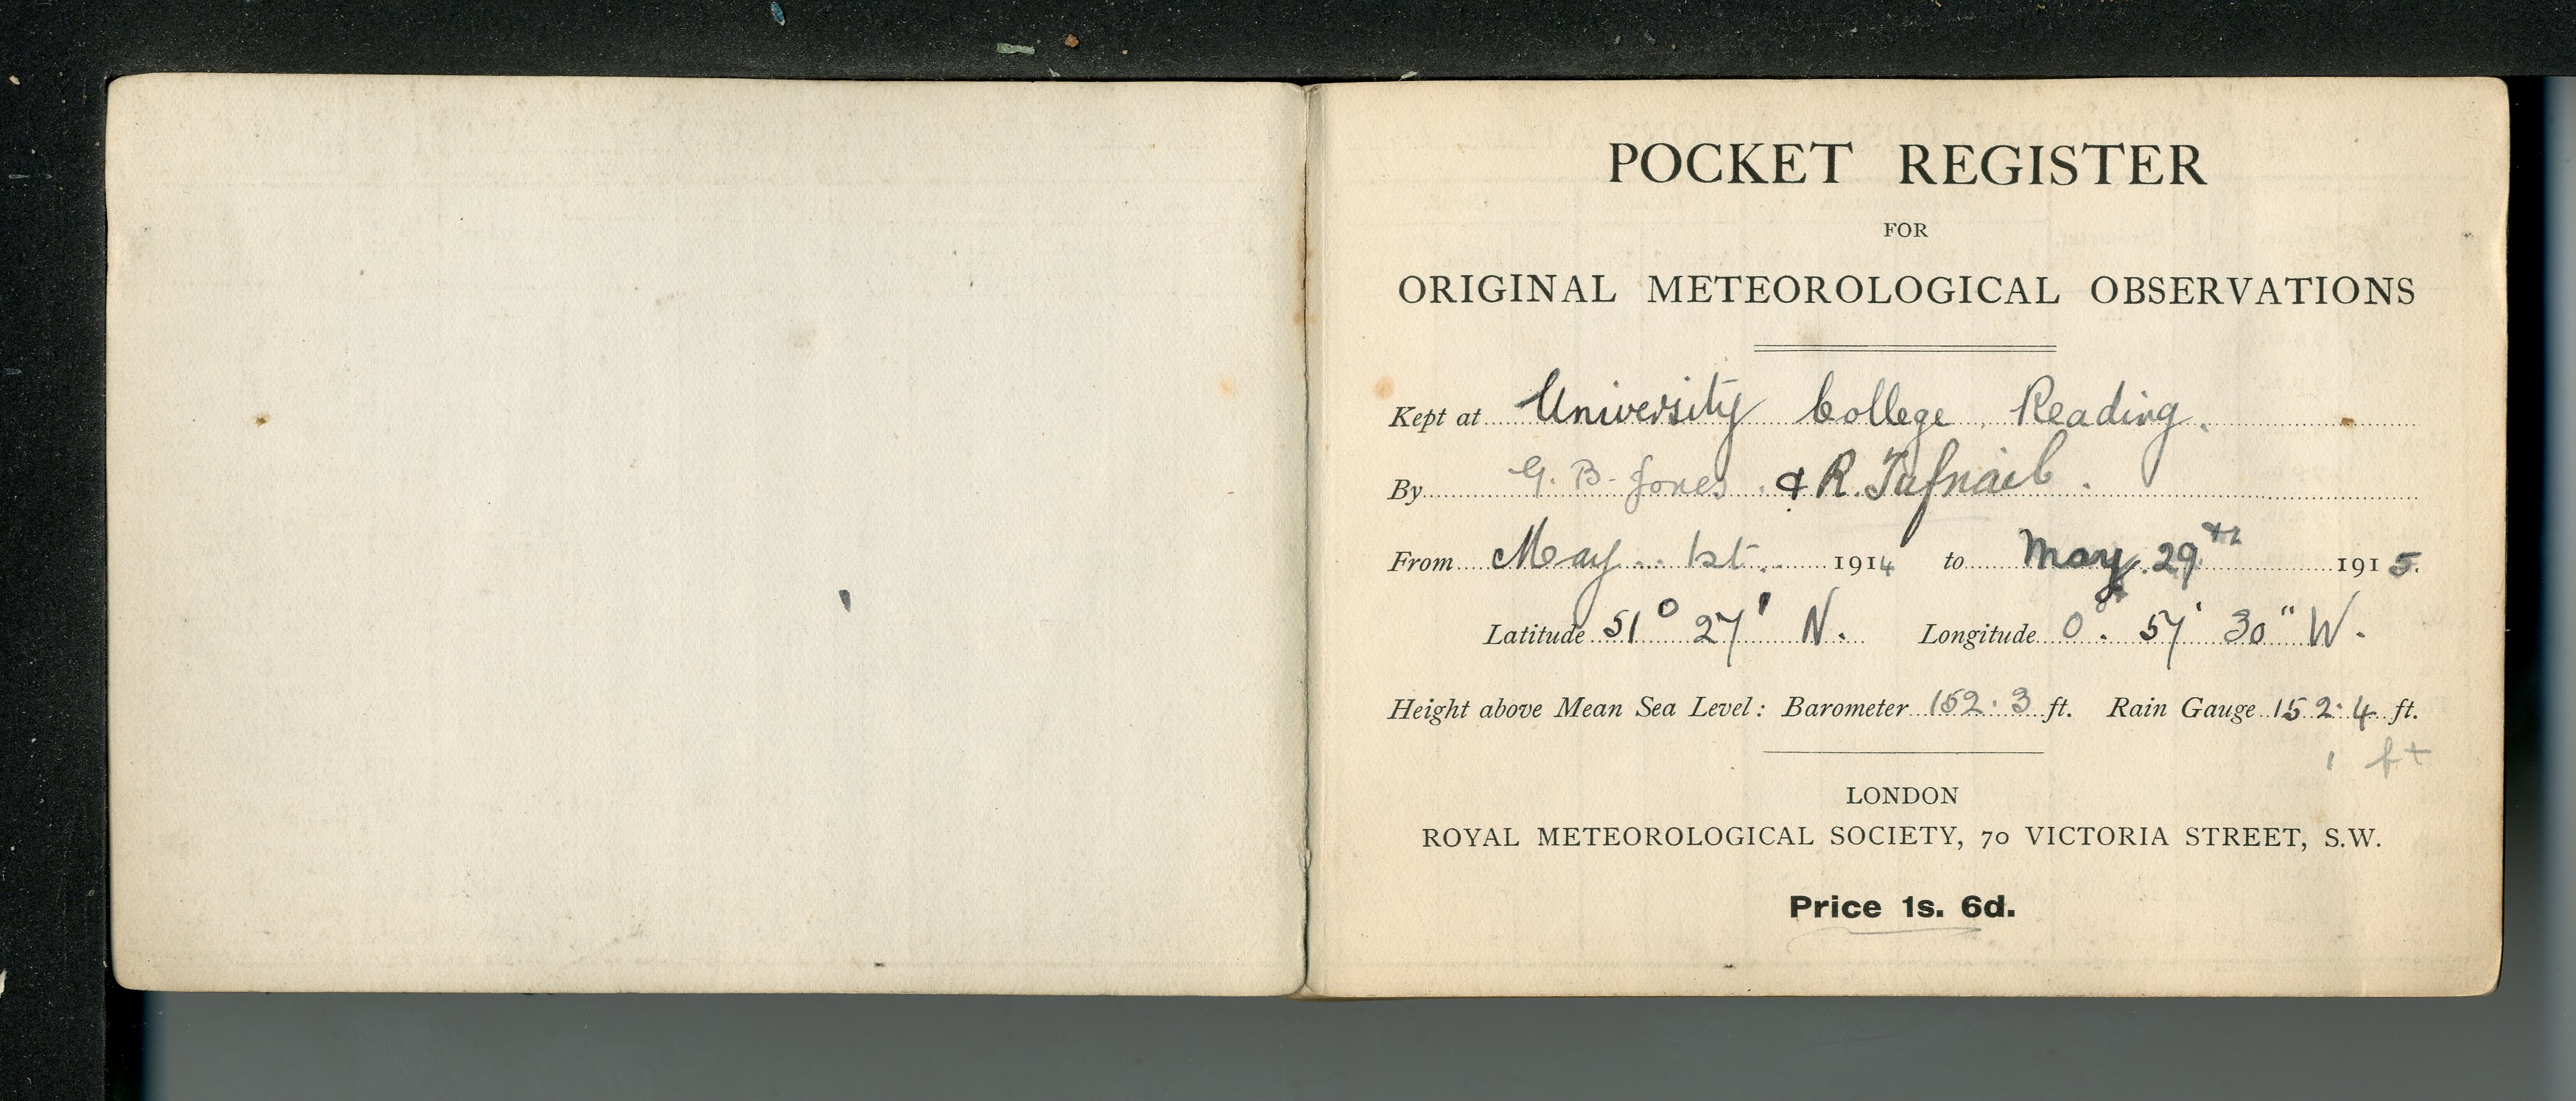 POCKET REGISTER
FOR
ORIGINAL METEOROLOGICAL OBSERVATIONS
Kept at University College, Reading.
By G. B. Jones. & R. Tufnail.
From May 1st. 1914 to May 29th 1915.
Latitude 51° 27' N. Longitude 0°. 57' 30" W.
Height above Mean Sea Level: Barometer 152.3 ft. Rain Gauge 152.4 ft.
1 ft
LONDON
ROYAL METEOROLOGICAL SOCIETY, 70 VICTORIA STREET, S.W.
Price 1s. 6d.